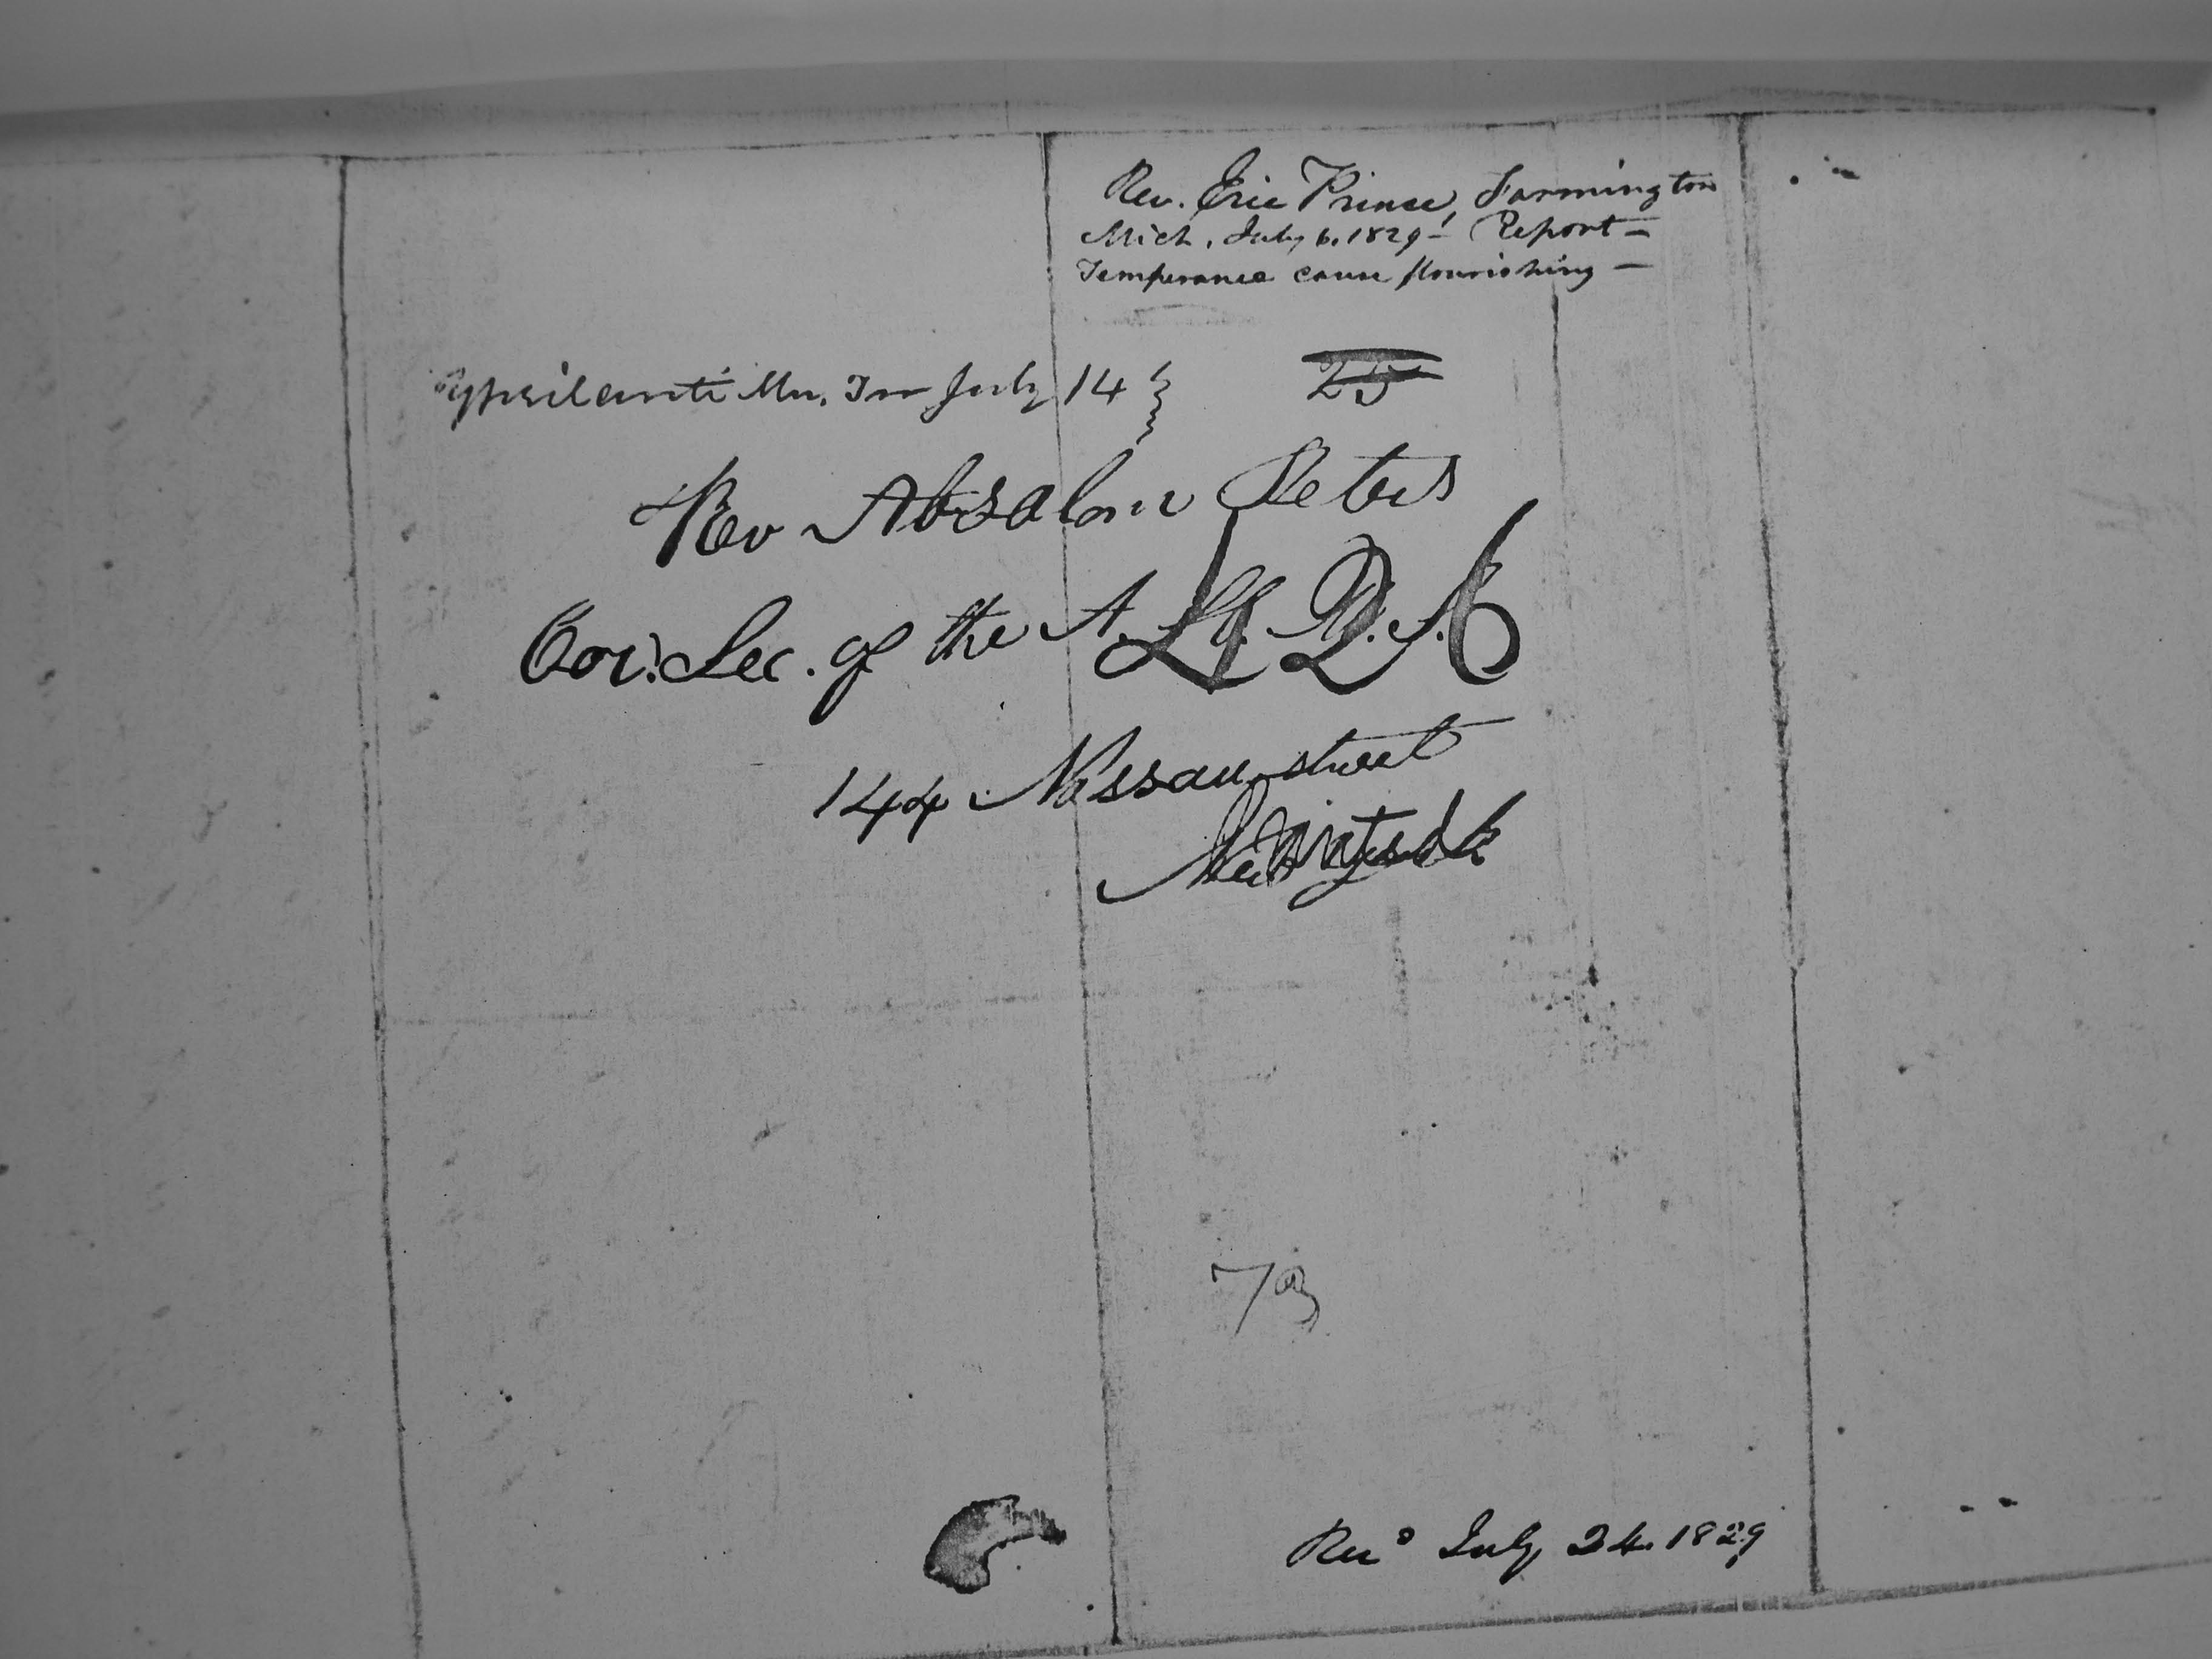 Rev. Eric Prince, Farmington
Mich. July 6. 1829 – Report –
Temperance cause flourishing –
Ypsilanti July 14
25
Rev Absalom Peters
Cor. Sec. of the A. H. M. S.
144 Nassau street
New York
73
Recd July 24. 1829